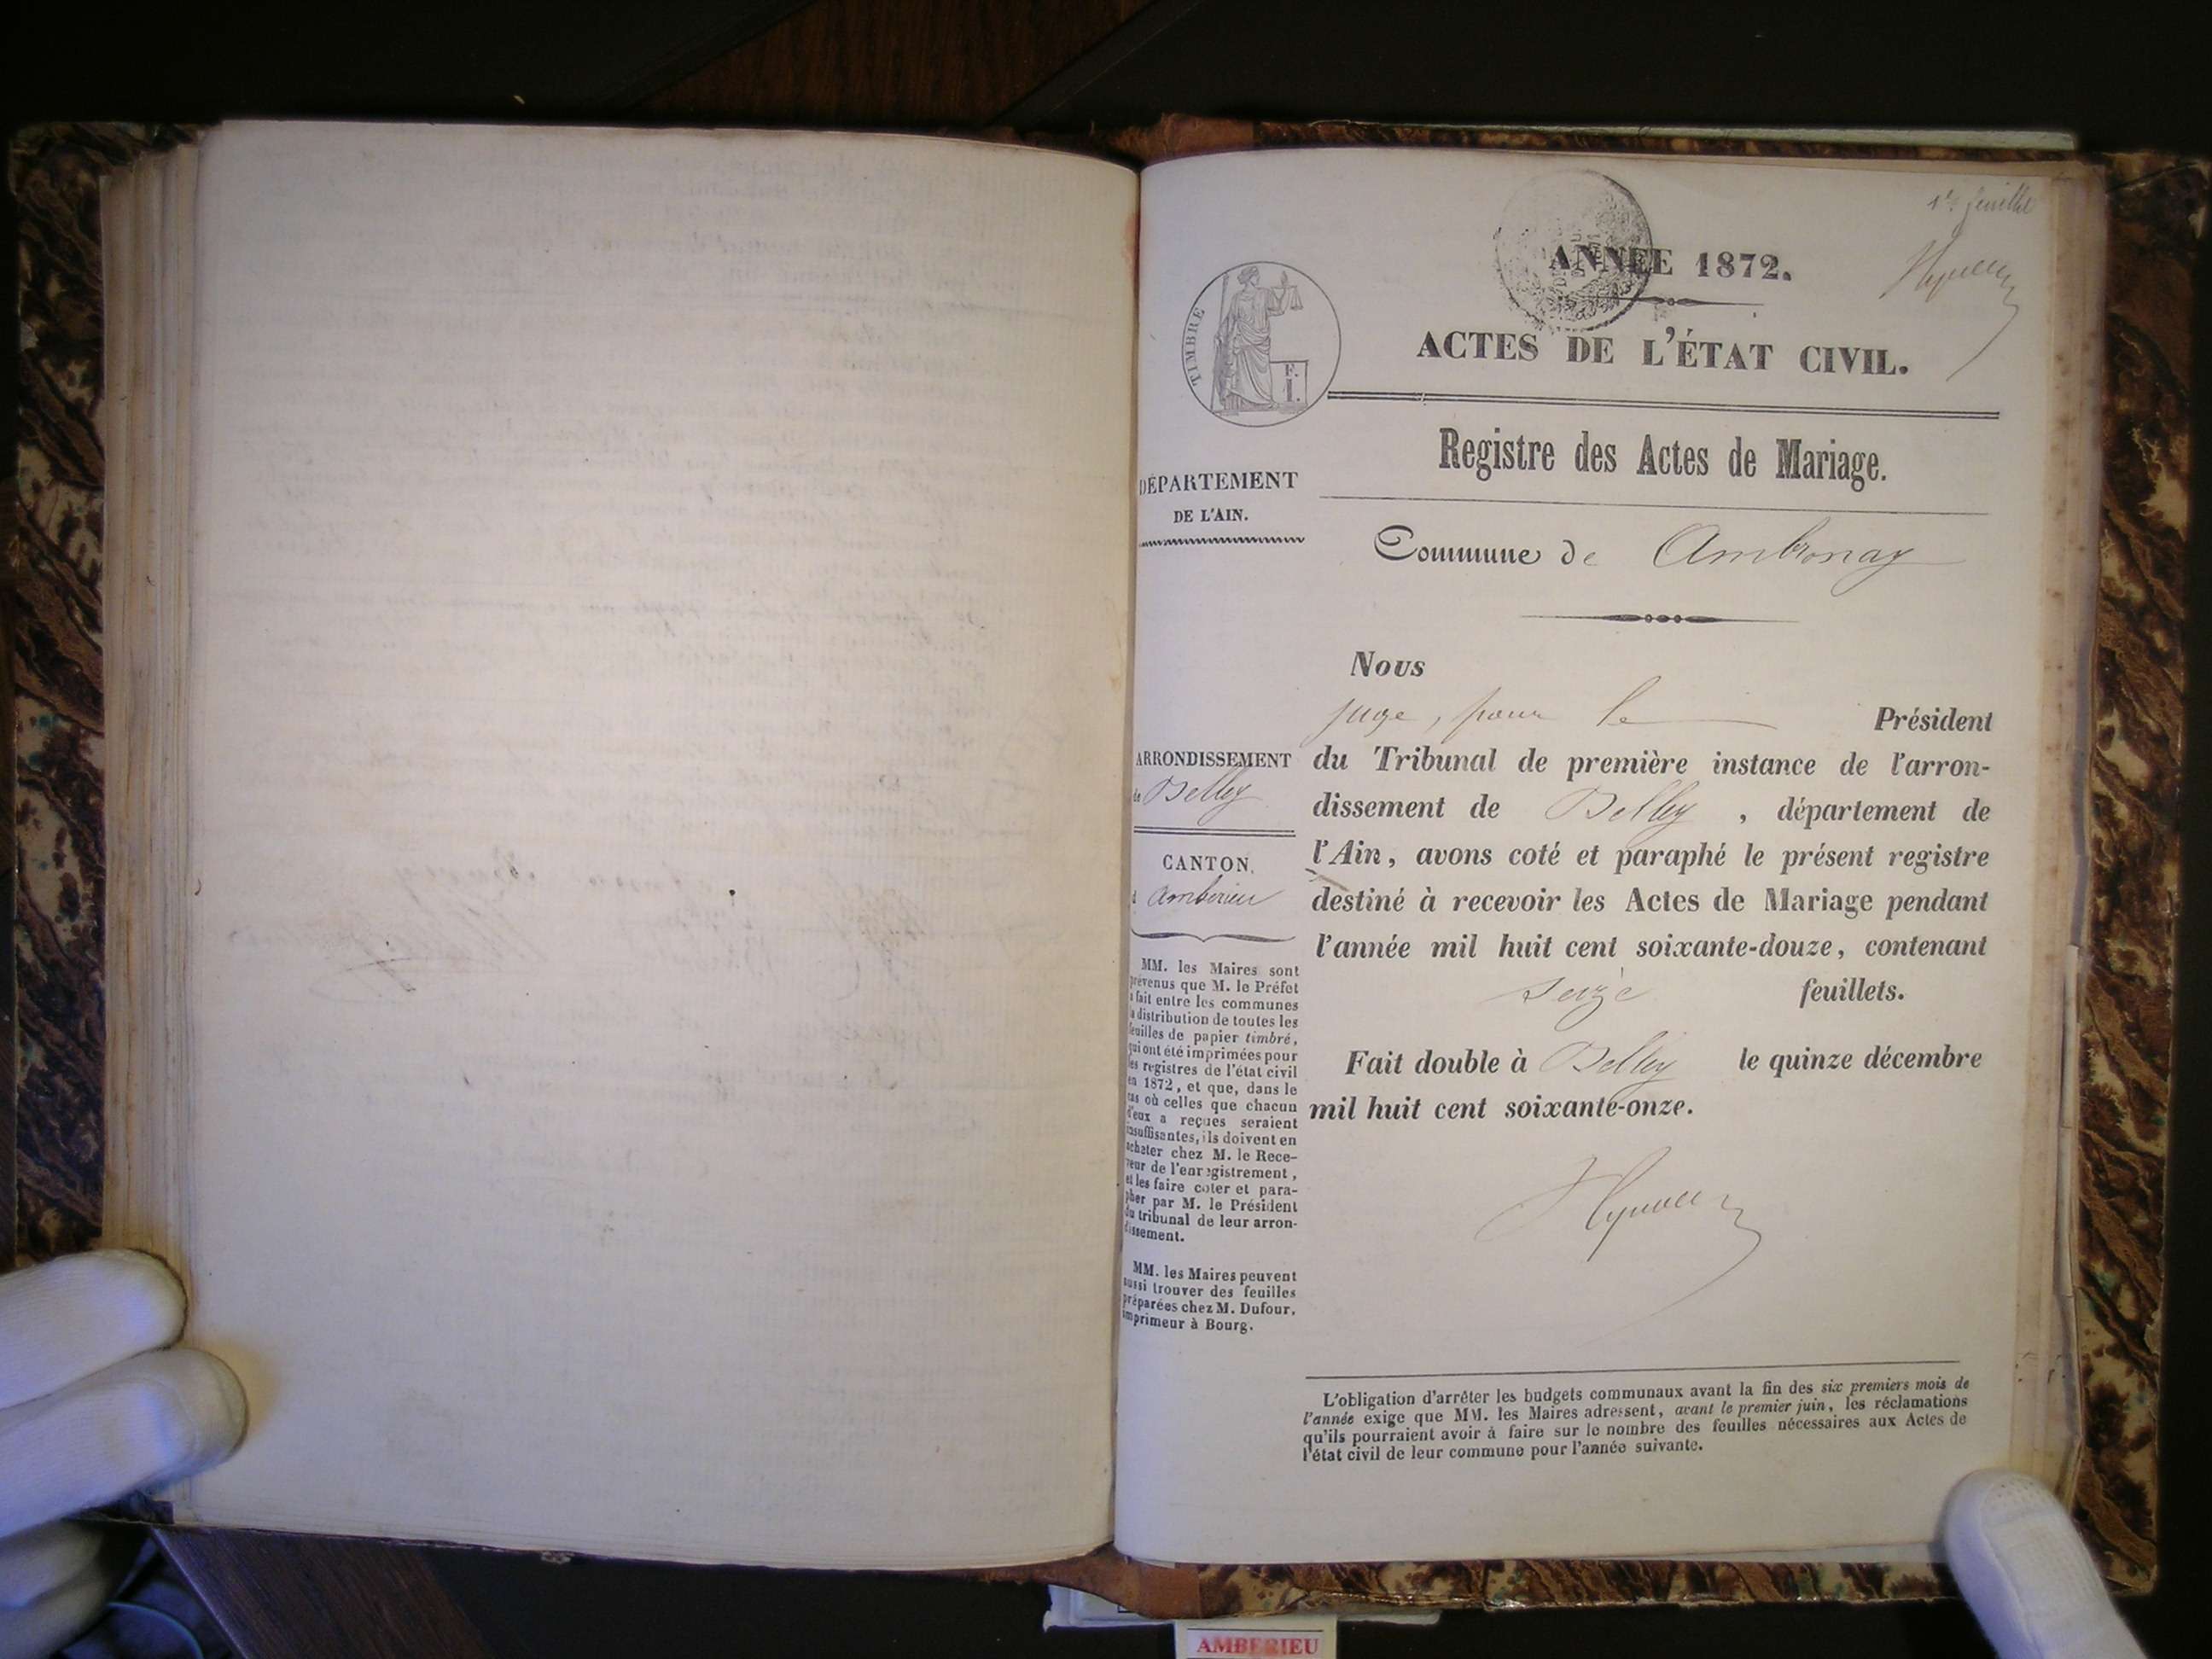 1er feuillet
ANNÉE 1872.
TIMBRE
F.
I.
ACTES DE L'ÉTAT CIVIL.
Registre des Actes de Mariage.
DÉPARTEMENT
DE L'AIN.
Commune de Ambronay
Nous
juge, pour le Président
du Tribunal de première instance de l'arron-
dissement de Belley, département de
l'Ain, avons coté et paraphé le présent registre
destiné à recevoir les Actes de Mariage pendant
l'année mil huit cent soixante-douze, contenant
seize feuillets.
Fait double à Belley le quinze décembre
mil huit cent soixante-onze.
ARRONDISSEMENT
de Belley
CANTON
d Ambérieu
MM. les Maires sont
prévenus que M. le Préfet
a fait entre les communes
la distribution de toutes les
feuilles de papier timbré,
qui ont été imprimées pour
les registres de l'état civil
en 1872, et que, dans le
cas où celles que chacun
d'eux a reçues seraient
insuffisantes, ils doivent en
acheter chez M. le Rece-
veur de l'enregistrement,
et les faire coter et para-
pher par M. le Président
du tribunal de leur arron-
dissement.
MM. les Maires peuvent
aussi trouver des feuilles
préparées chez M. Dufour,
imprimeur à Bourg.
L'obligation d'arrêter les budgets communaux avant la fin des six premiers mois de
l'année exige que MM. les Maires adressent, avant le premier juin, les réclamations
qu'ils pourraient avoir à faire sur le nombre des feuilles nécessaires aux Actes de
l'état civil de leur commune pour l'année suivante.
AMBERIEU